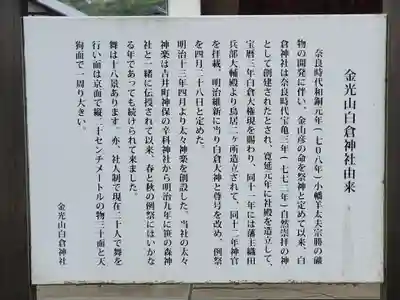 金光山白倉神社由来
奈良時代和銅元年(七〇八年)小幡羊太夫宗勝の鏃
物の開発に伴い、金山彦の命を祭神と定めて以来、白
倉神社は奈良時代宝亀三年(七七二年)自然崇拝の神
として創建されたとされ、寛延元年に社殿を造立して、
宝暦三年白倉大権現を賜わり、同十一年には藩主織田
兵部大輔殿より鳥居二ヶ所造立されて、同十二年神官
を拝載、明治維新に当り白倉大神と尊号を改め、例祭
を四月二十八日と定めた。
明治十三年四月より太々神楽を創設した。当社の太々
神楽は吉井町神保の辛科神社から明治九年に笹の森神
社と一緒に伝授されて以来、春と秋の例祭にはいかな
る年であっても続けられて来ました。
舞は十八景あります。亦、社人制で現在二十人で舞を
行い面は京面で縦二十センチメートルの物三十面と天
狗面で一周り大きい。
金光山白倉神社